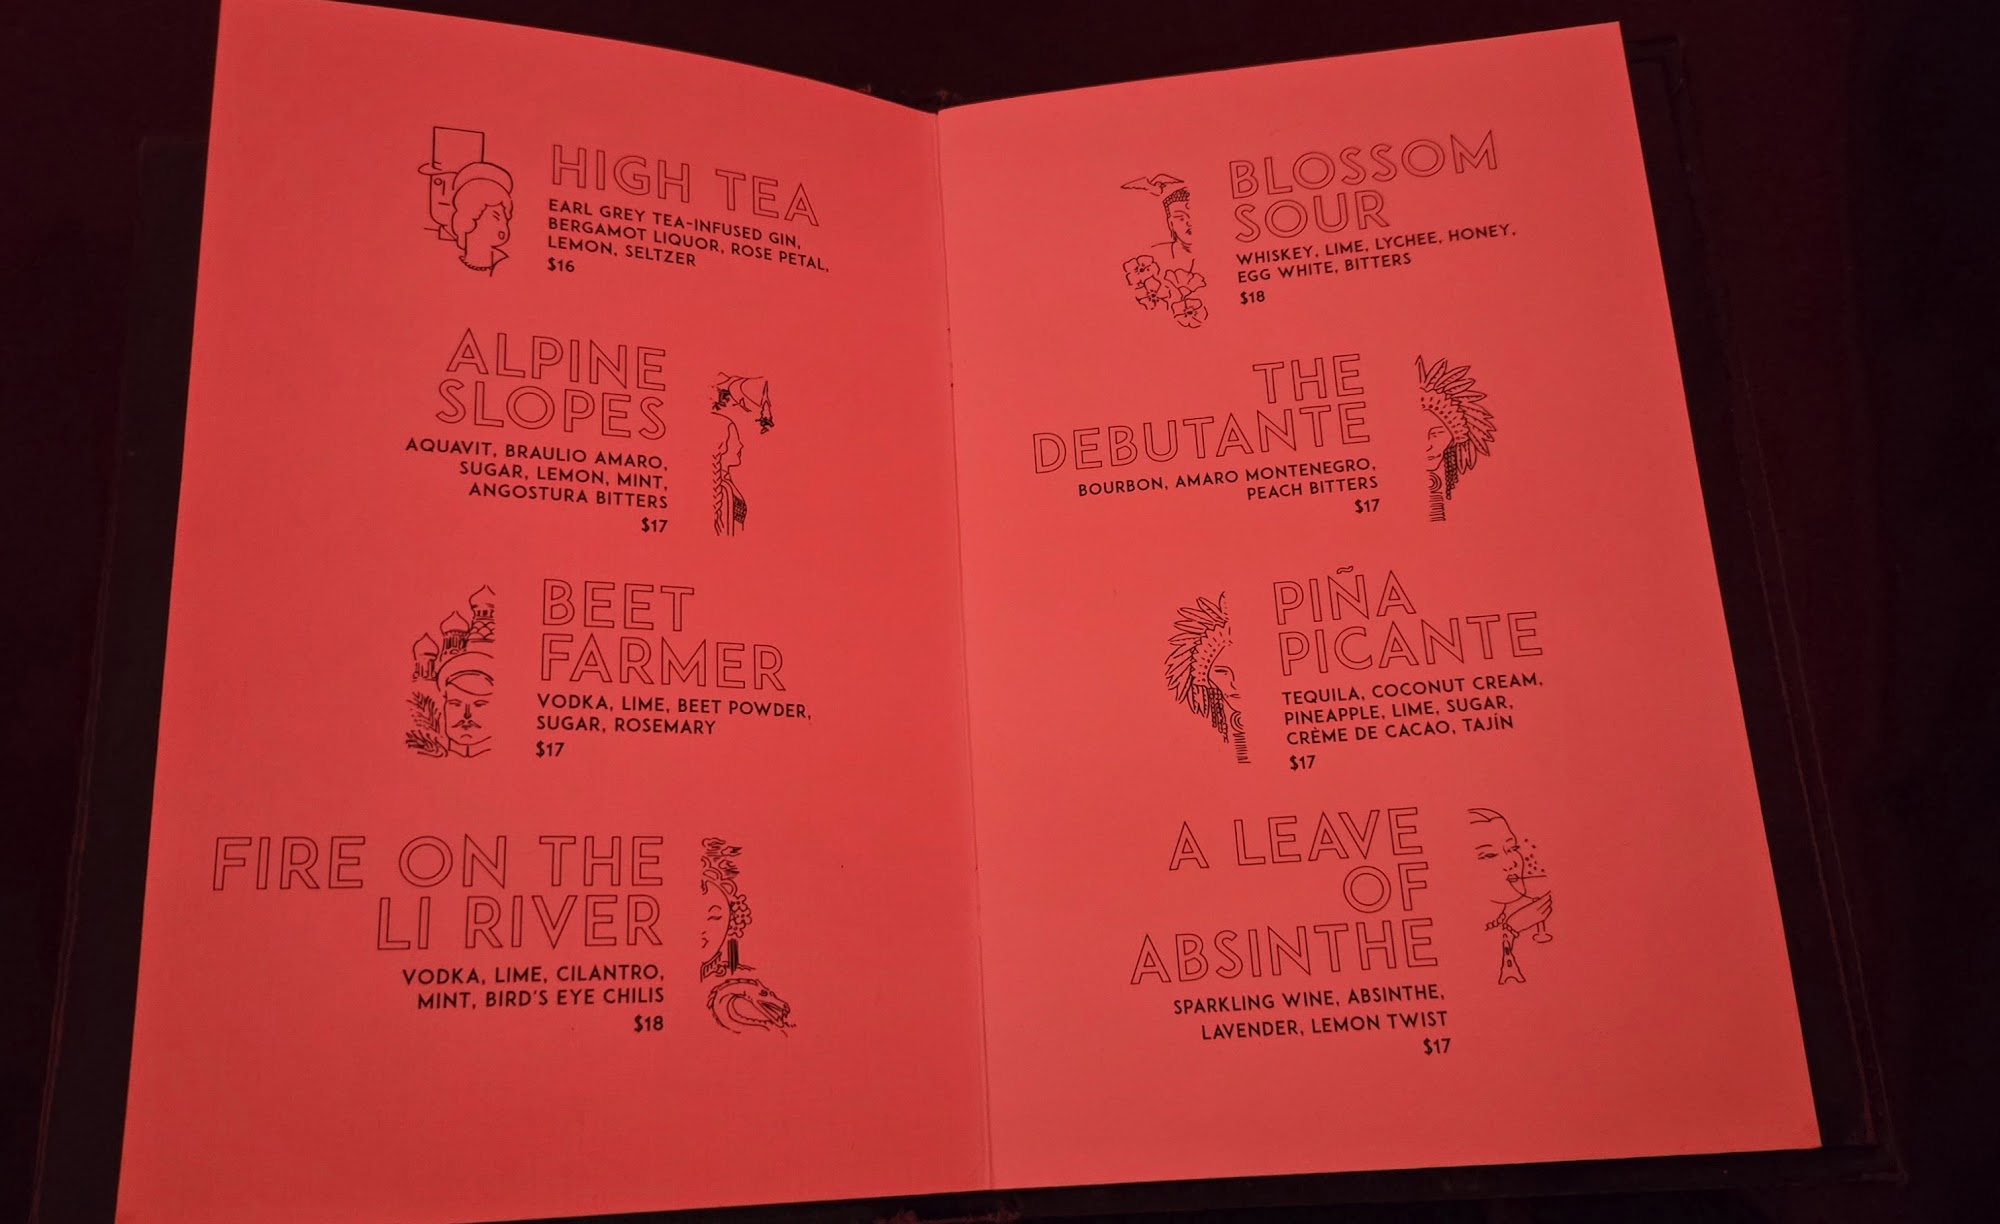 HIGH TEA
EARL GREY TEA-INFUSED GIN,
BERGAMOT LIQUOR, ROSE PETAL,
LEMON, SELTZER
$16
ALPINE
SLOPES
AQUAVIT, BRAULIO AMARO,
SUGAR, LEMON, MINT,
ANGOSTURA BITTERS
$17
BEET
FARMER
VODKA, LIME, BEET POWDER,
SUGAR, ROSEMARY
$17
FIRE ON THE
LI RIVER
VODKA, LIME, CILANTRO,
MINT, BIRD'S EYE CHILIS
$18
BLOSSOM
SOUR
WHISKEY, LIME, LYCHEE, HONEY,
EGG WHITE, BITTERS
$18
THE
DEBUTANTE
BOURBON, AMARO MONTENEGRO,
PEACH BITTERS
$17
PIÑA
PICANTE
TEQUILA, COCONUT CREAM,
PINEAPPLE, LIME, SUGAR,
CRÈME DE CACAO, TAJÍN
$17
A LEAVE
OF
ABSINTHE
SPARKLING WINE, ABSINTHE,
LAVENDER, LEMON TWIST
$17